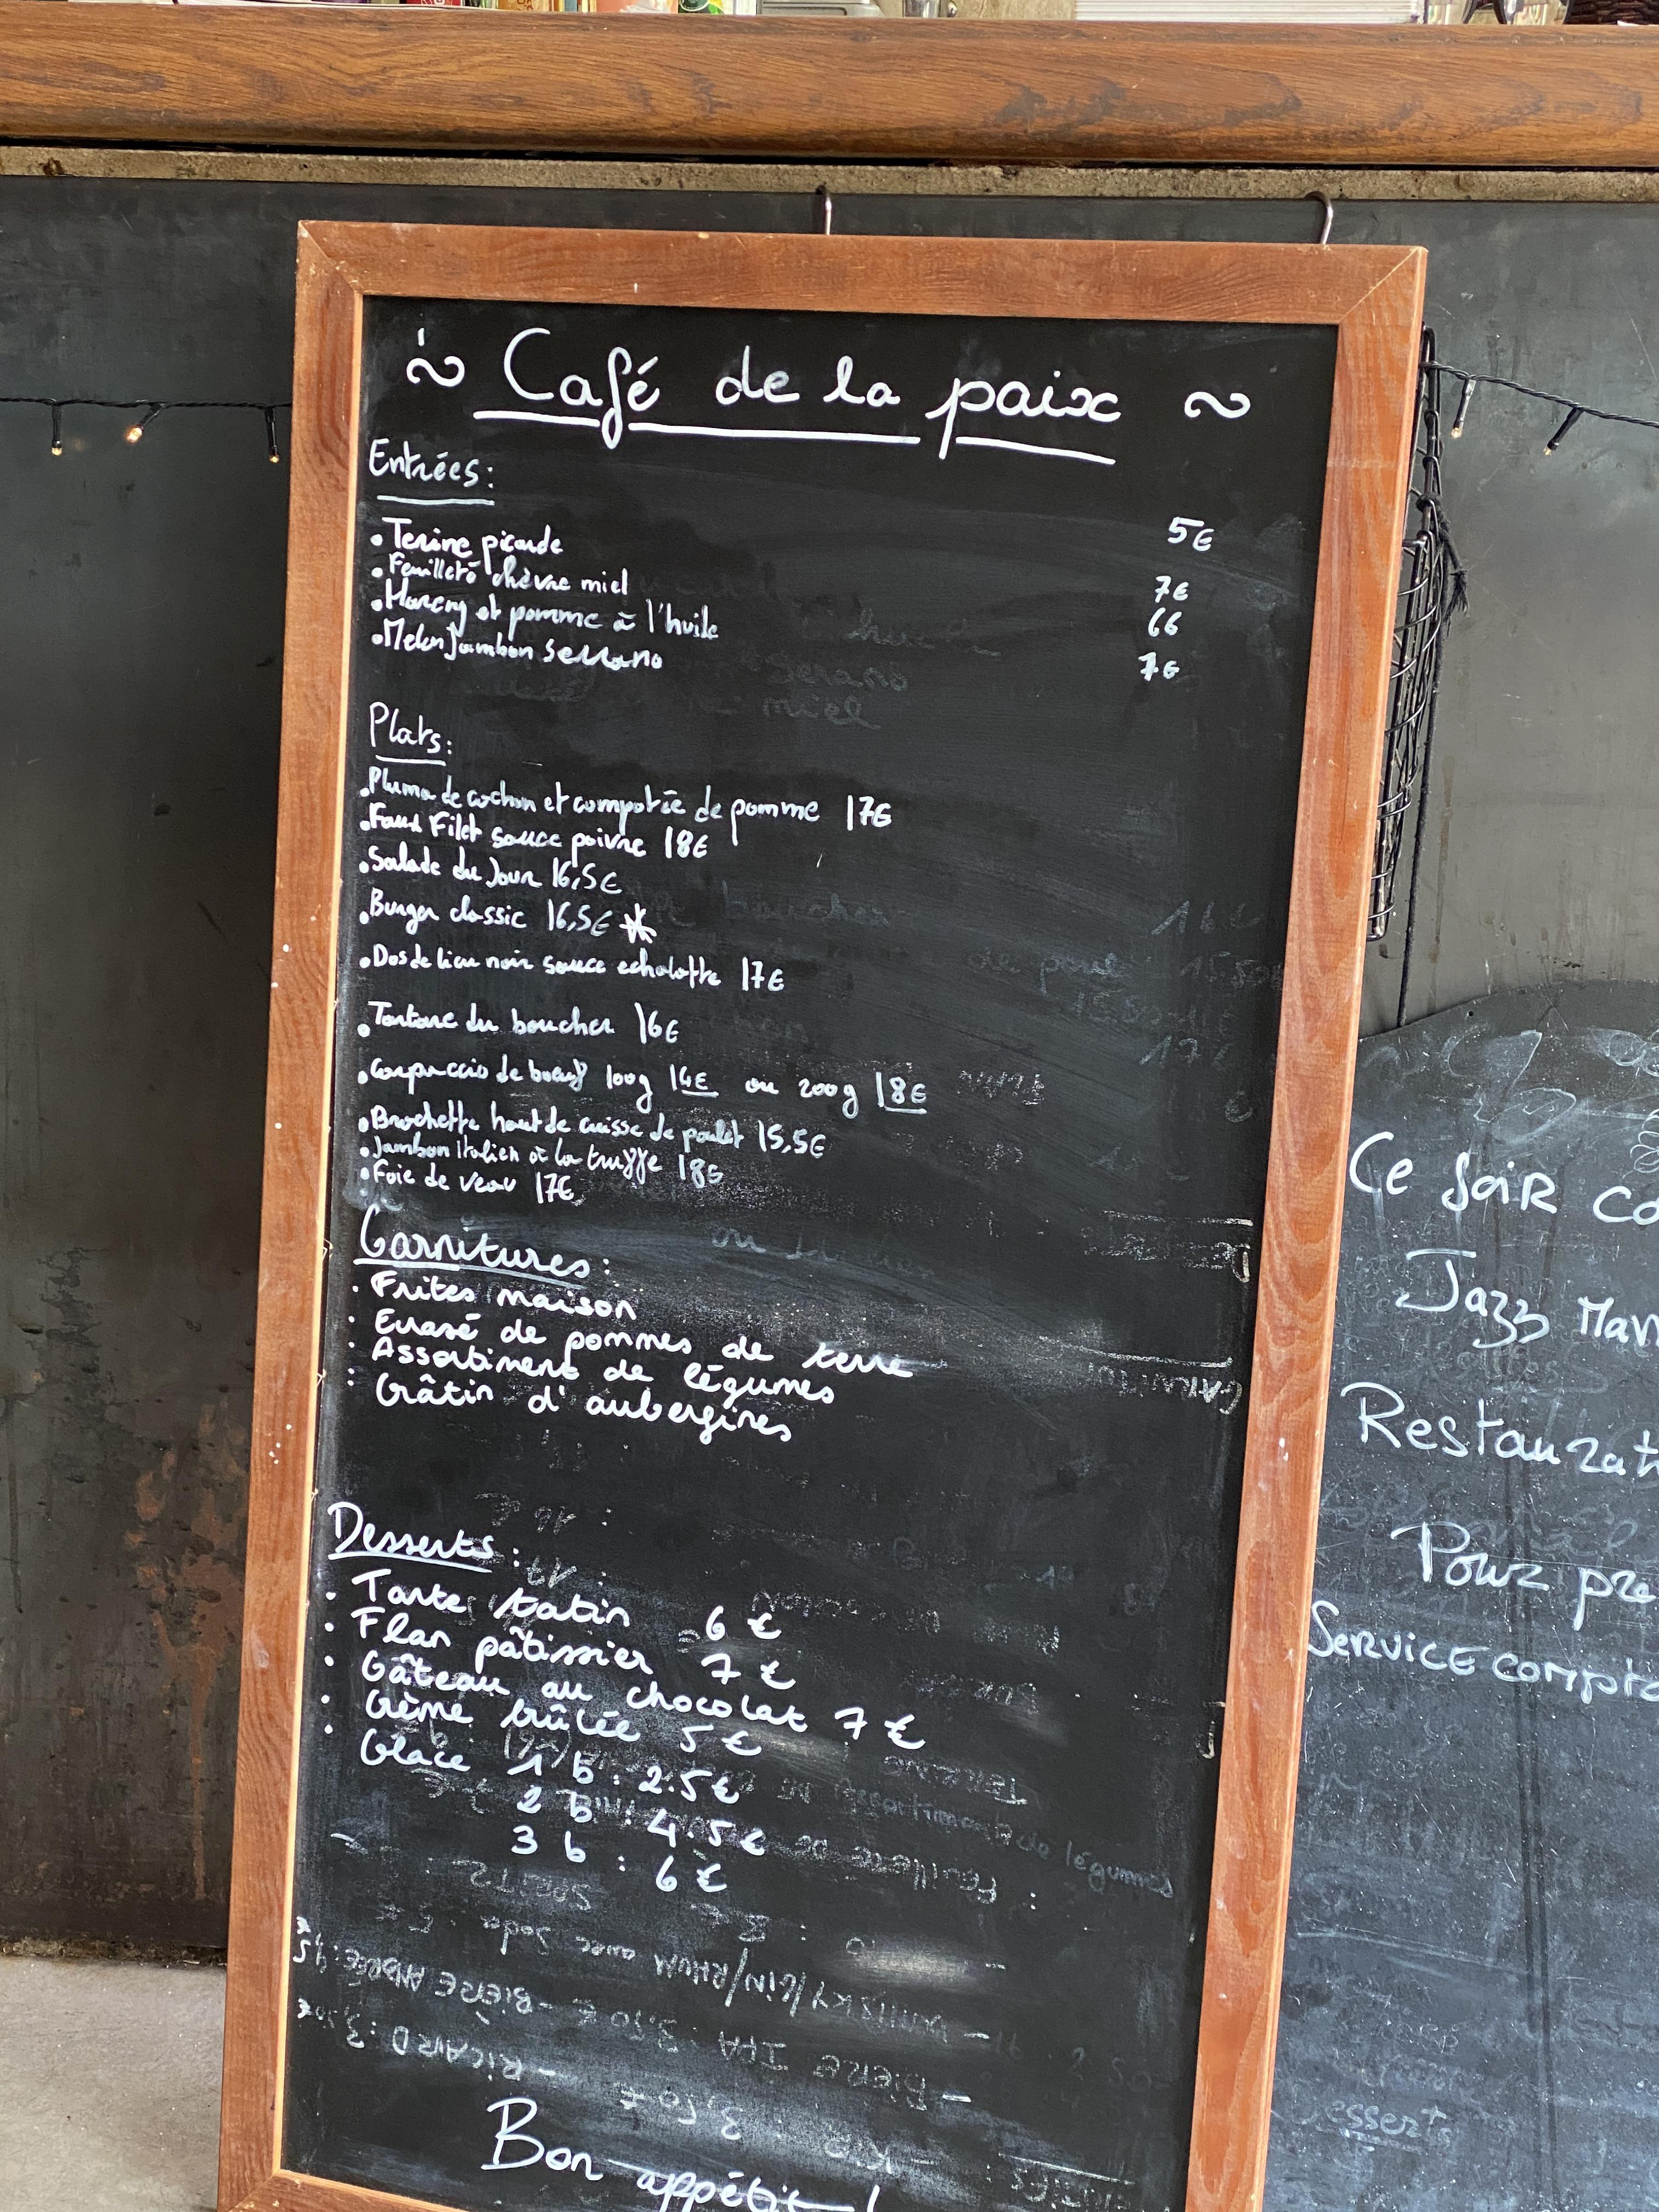 ~ Café de la paix ~
Entrées:
• Terine picarde 5€
• Feuilleté chèvre miel 7€
• Hareng et pomme à l'huile 6€
• Melon Jambon serrano 7€
Plats:
• Pluma de cochon et compotée de pomme 17€
• Faux Filet sauce poivre 18€
• Salade du Jour 16,5€
• Burger classic 16,5€ *
• Dos de lieu noir sauce echalotte 17€
• Tartare du boucher 16€
• Carpaccio de bœuf 100g 14€ ou 200g 18€
• Brochette haut de cuisse de poulet 15,5€
• Jambon Italien à la truffe 18€
• Foie de veau 17€
Garnitures:
· Frites maison
· Ecrasé de pommes de terre
· Assortiment de légumes
· Grâtin d'aubergines
Desserts:
· Tarte tatin 6 €
· Flan pâtissier 7 €
· Gâteau au chocolat 7 €
· Crème brûlée 5 €
· Glace 1 b : 2.5€
2 b : 4.5€
3 b : 6 €
Bon appétit !
serano
miel
boucher 16€
15,50€
de légumes
- WHISKY/GIN/RHUM avec soda
- BIÈRE IPA : 3,50 € - BIÈRE ANDRÉE
- RICARD : 3,50€
Ce soir
Jazz
Restaurat
Pour
Service